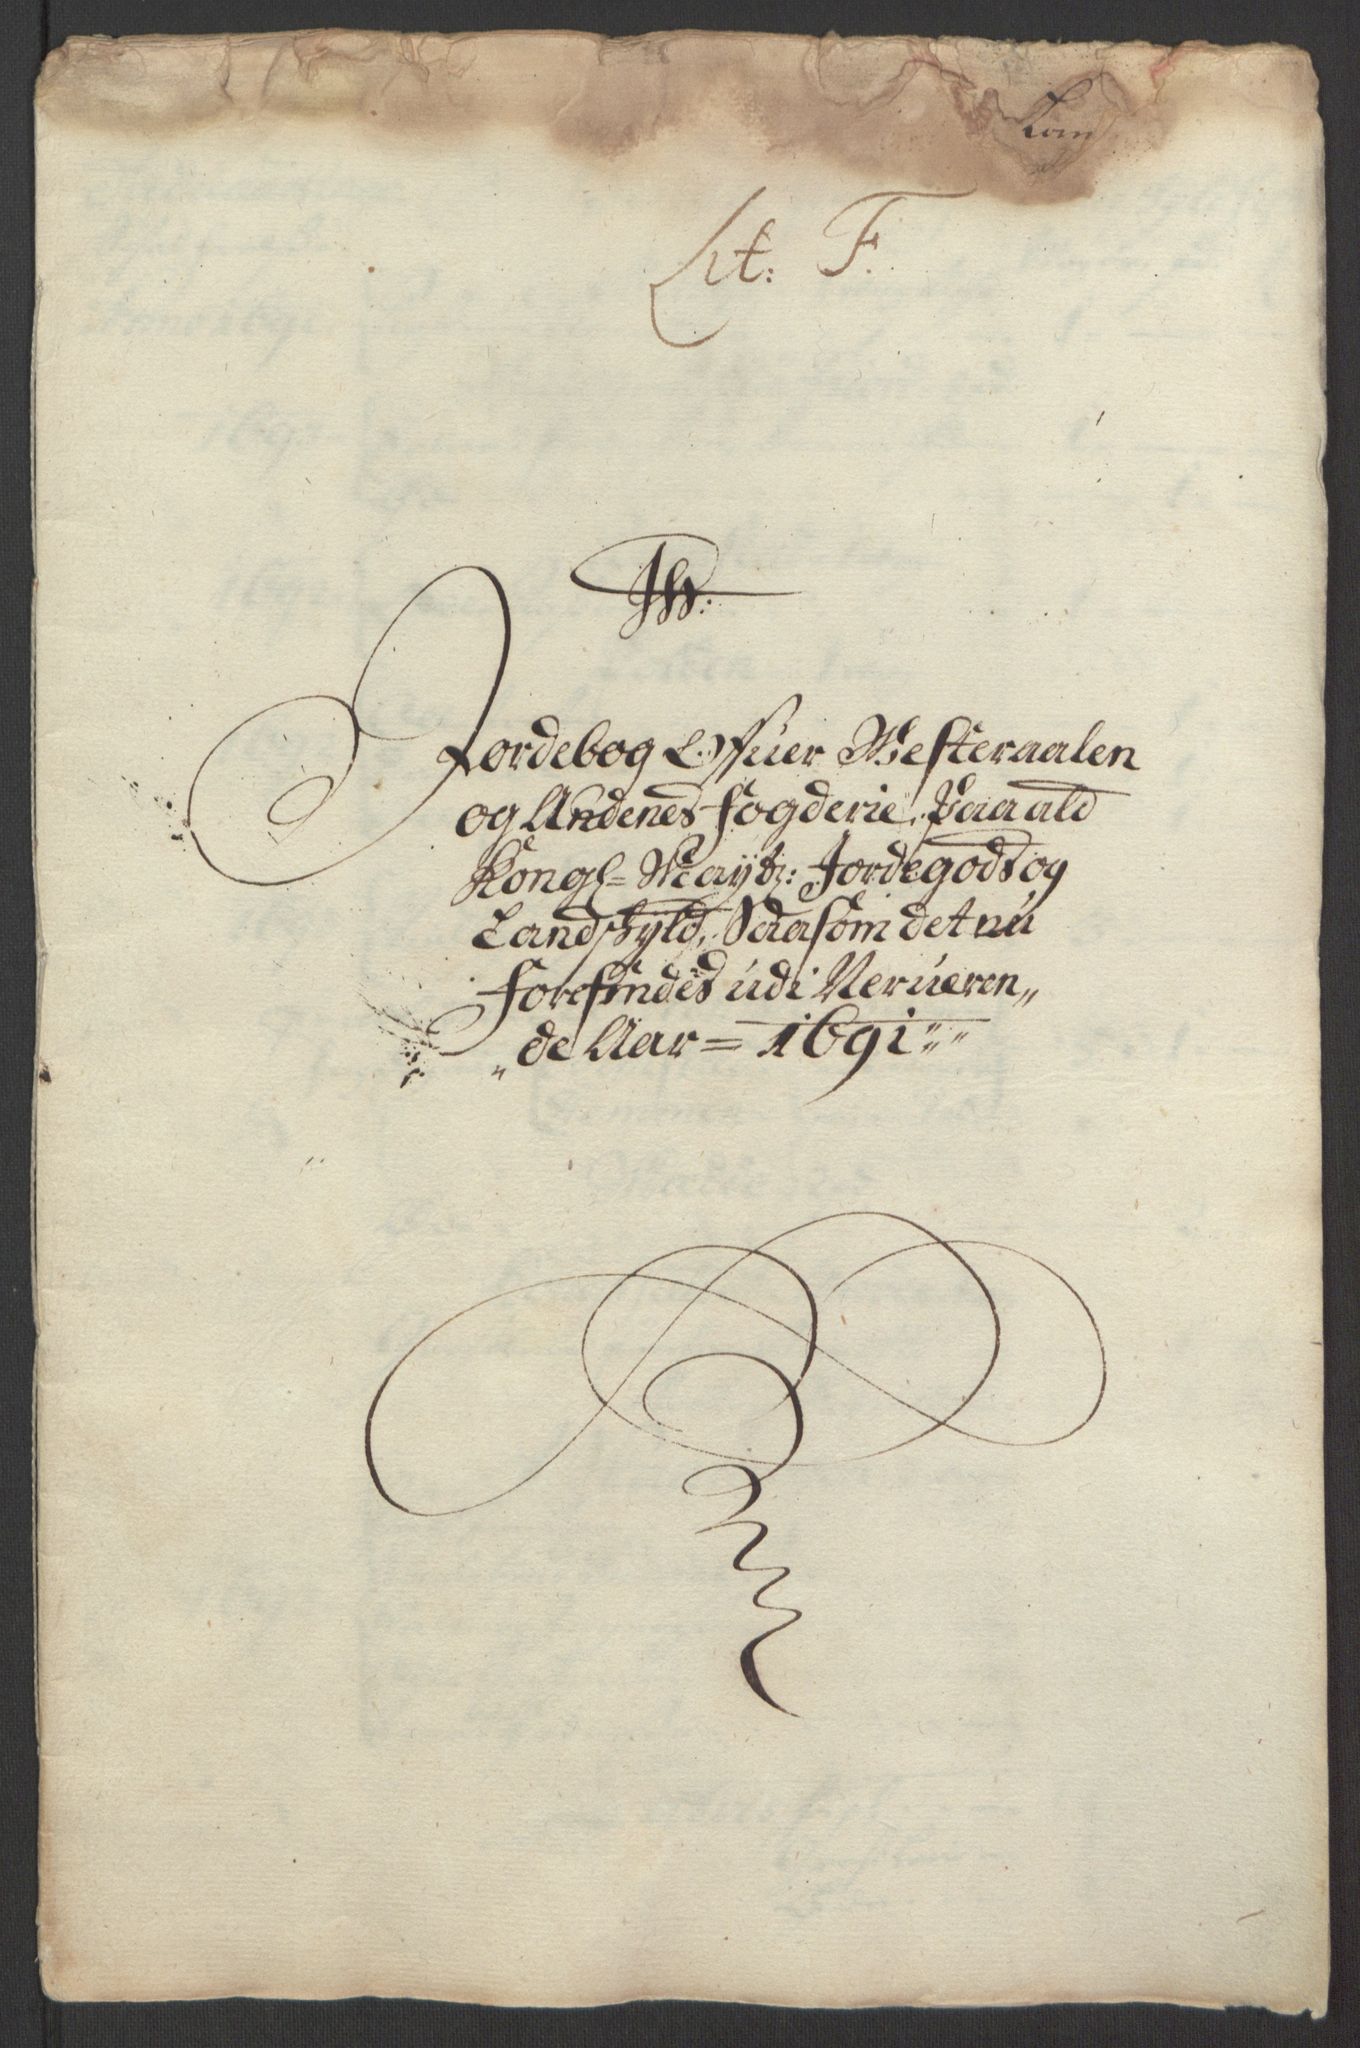 Lit: F.
Jordebog Offuer Westeraalen
og Andenes fogderie, Paa ald
Kongl= Maytz: Jordegods og
Landskyld, Saasom det nu
forefindes udi Nerueren„
„de Aar = 1691 „ „